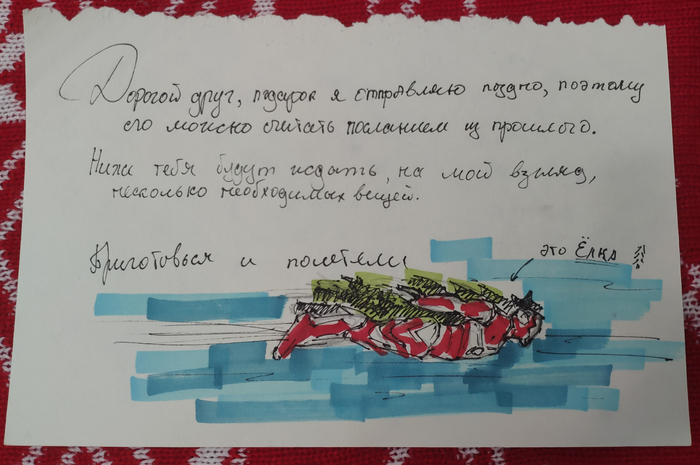 Дорогой друг, подарок я отправляю поздно, поэтому
его можно считать посланием из прошлого.
Ниже тебя будут ждать, на мой взгляд,
несколько необходимых вещей.
Приготовься и полетели
это Ёлка